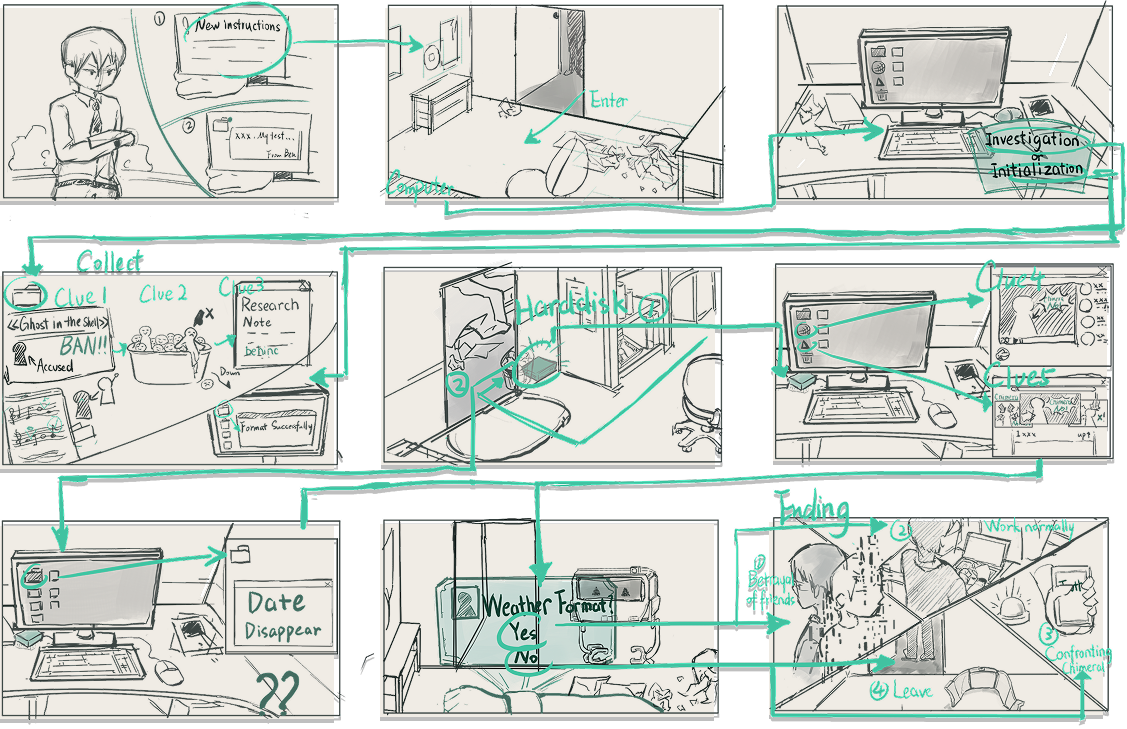 ①
New instructions
②
xxx. My test...
From Ben
Enter
Computer
Investigation
or
Initialization
Collect
Clue 1
Clue 2
Clue 3
≪Ghost in the Shell≫
BAN!!
Accused
X
Research
Note
before
Down
Format Successfully
Harddisk ①
②
Clue 4
Clue 5
1xxx
up↑
Date
Disappear
??
Weather Format?
Yes
No
Ending
①
Betrayal
of friends
②
Work normally
③
Confronting
Chimeral
④ Leave